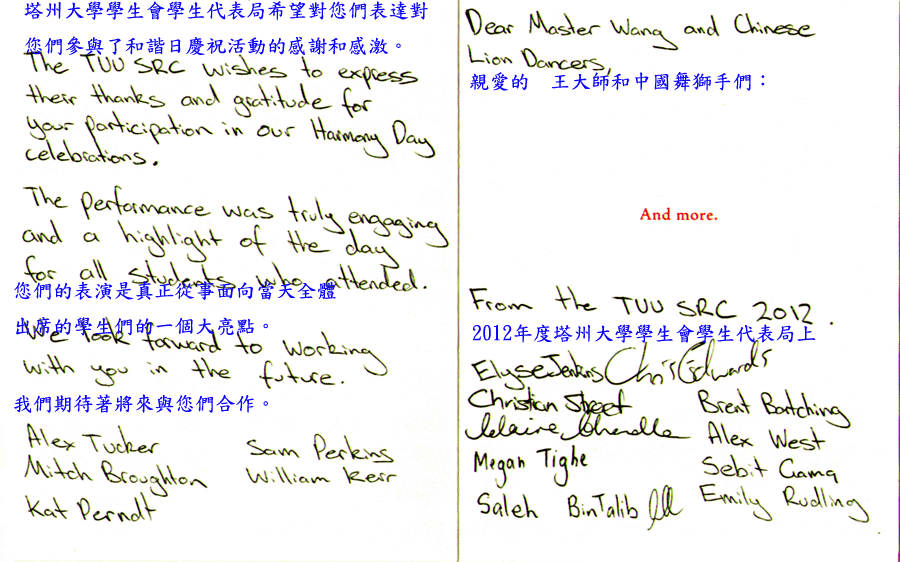 塔州大學學生會學生代表局希望對您們表達對
您們參與了和諧日慶祝活動的感謝和感激。
The TUU SRC wishes to express
their thanks and gratitude for
your participation in our Harmony Day
celebrations.
The performance was truly engaging
and a highlight of the day
for all students who attended.
您們的表演是真正從事面向當天全體
出席的學生們的一個大亮點。
We look forward to working
with you in the future.
我們期待著將來與您們合作。
Alex Tucker
Sam Perkins
Mitch Broughton
William Kerr
Kat Perndt
Dear Master Wang and Chinese
Lion Dancers,
親愛的 王大師和中國舞獅手們：
And more.
From the TUU SRC 2012.
2012年度塔州大學學生會學生代表局上
Elyse Jenkins Chris Edwards
Christian Street
Brent Batching
Alex West
Megan Tighe
Sebit Gama
Saleh BinTalib
Emily Rudling